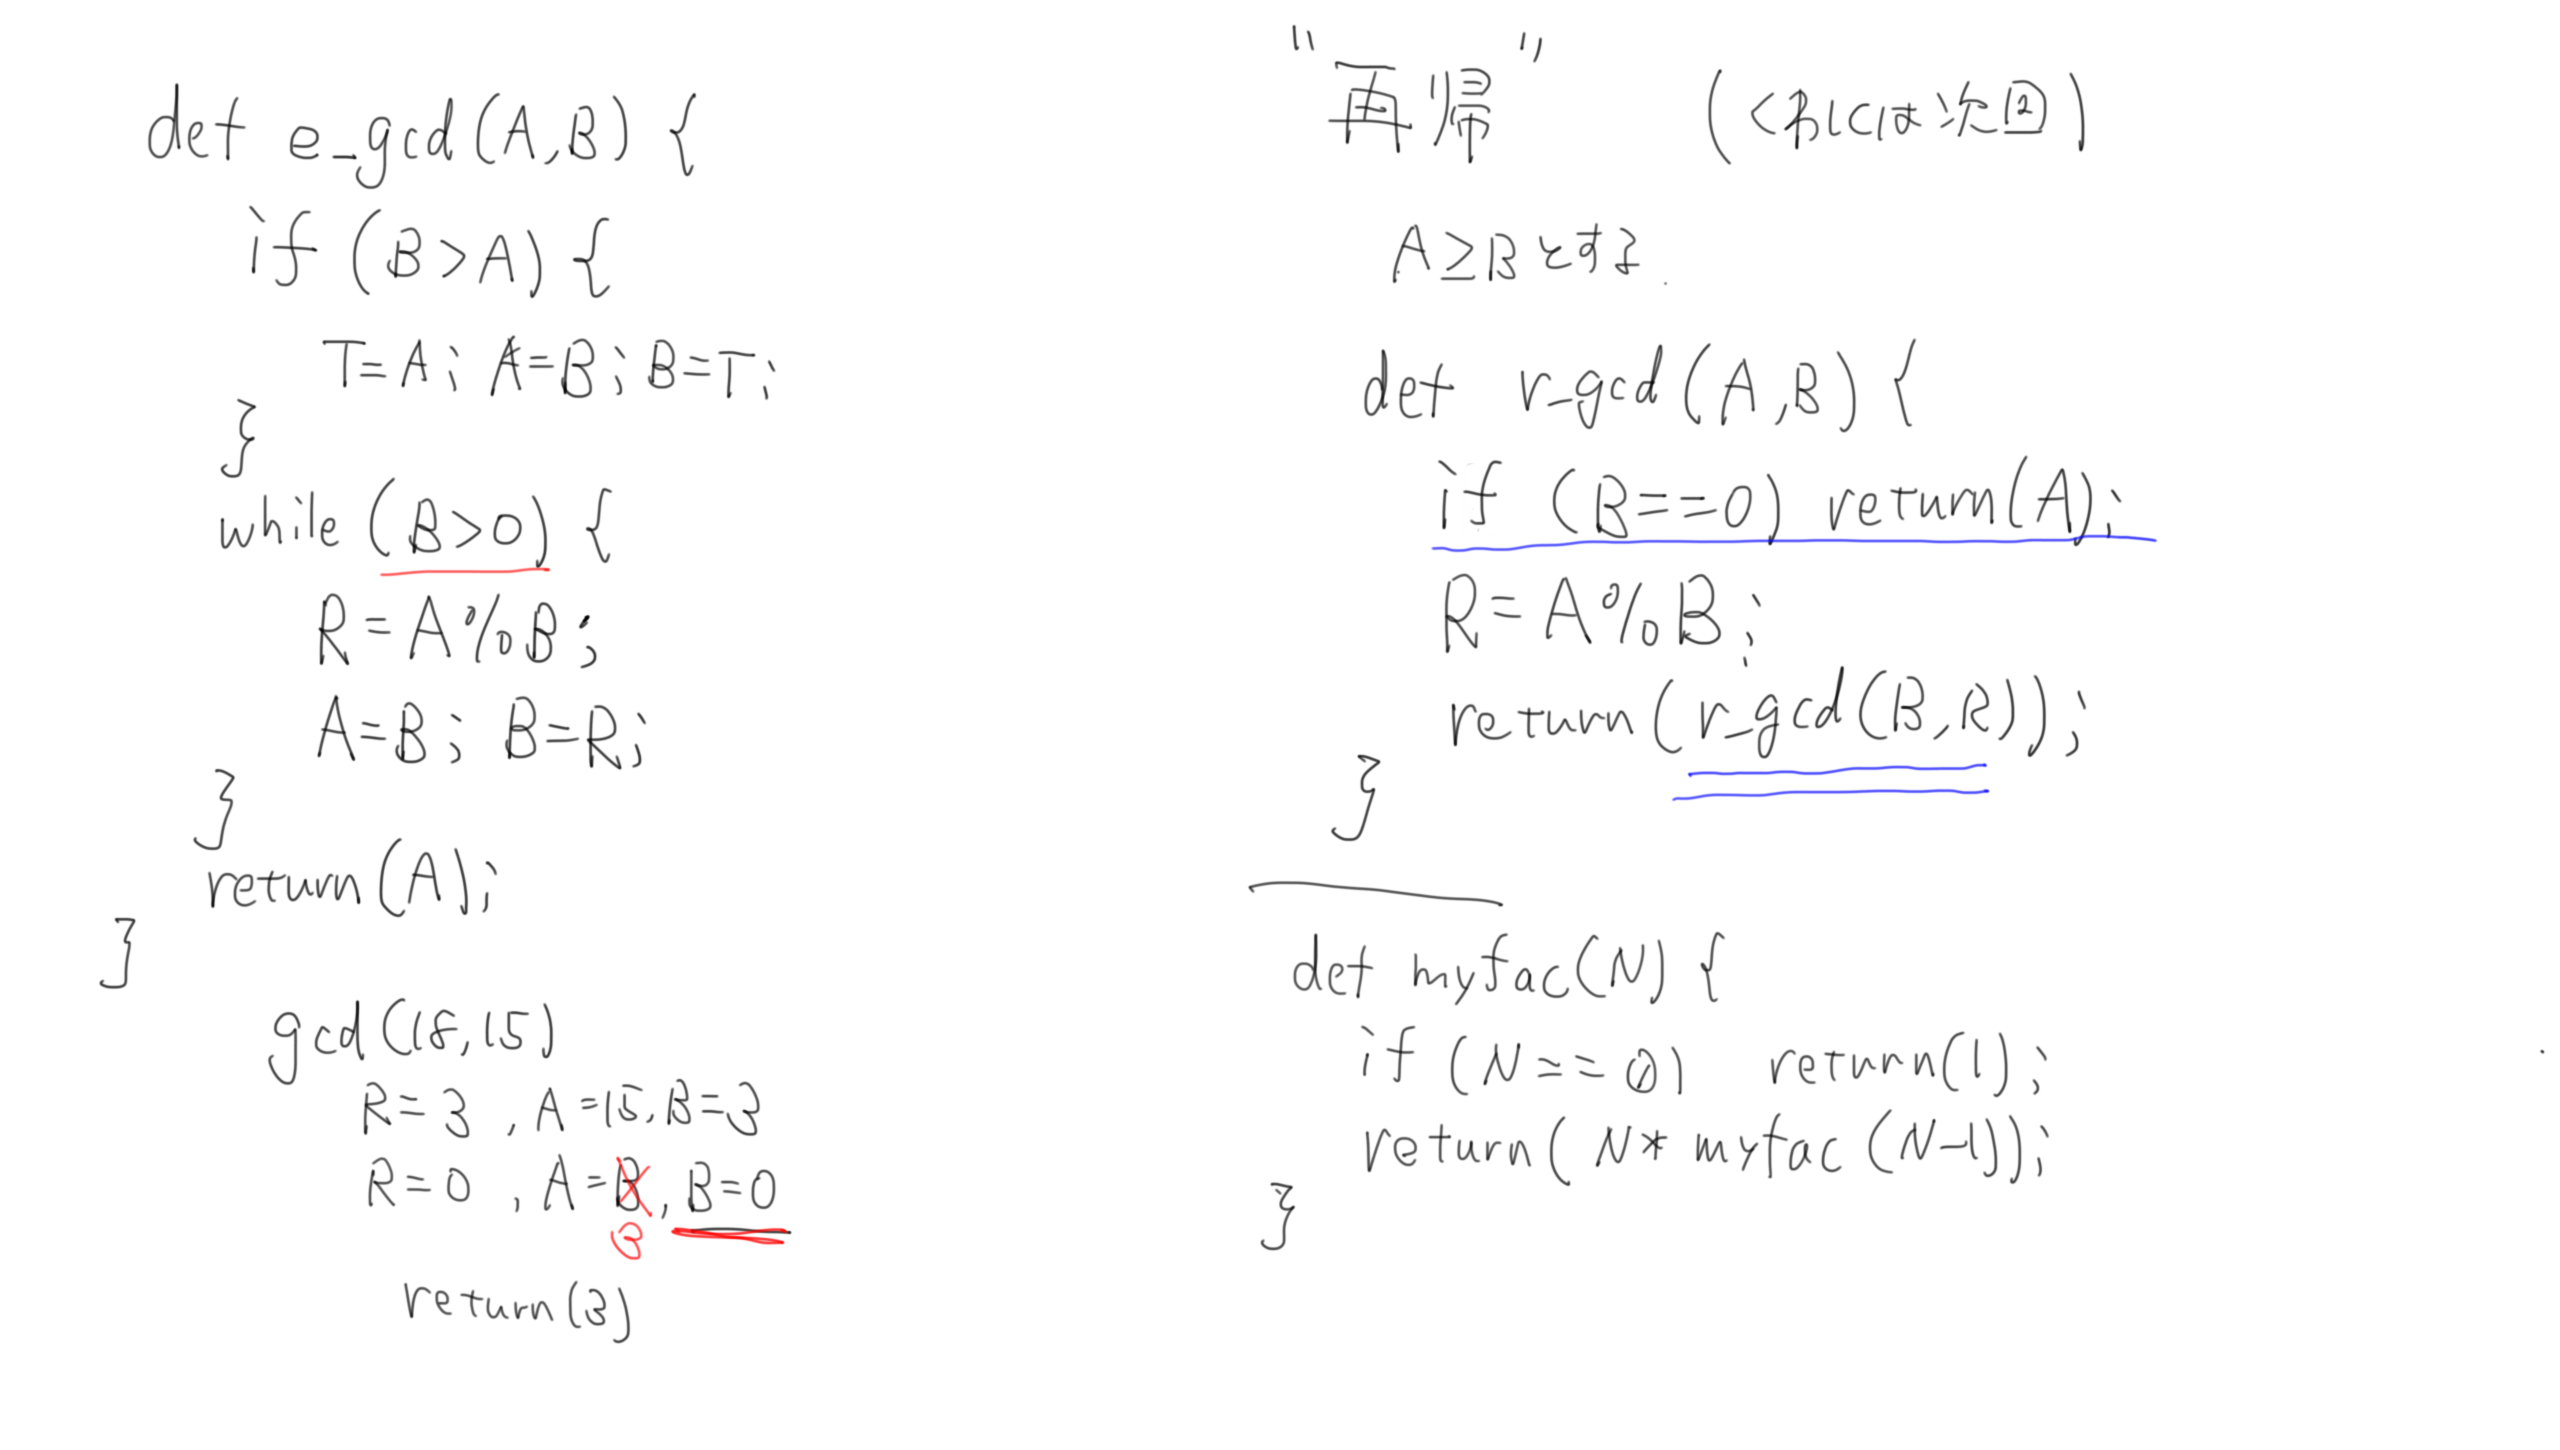 def e_gcd(A,B) {
if (B>A) {
T=A; A=B; B=T;
}
while (B>0) {
R=A%B;
A=B; B=R;
}
return(A);
}
gcd(18,15)
R=3, A=15, B=3
R=0, A=B, B=0
3
return(3)
"再帰" (くわしくは次回)
A≥Bとする.
def r_gcd(A,B) {
if (B==0) return(A);
R=A%B;
return(r_gcd(B,R));
}
def myfac(N) {
if (N==0) return(1);
return(N*myfac(N-1));
}